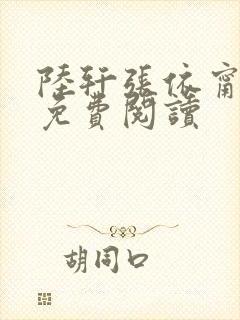 陸轩張依甯
免費閱讀
胡同口